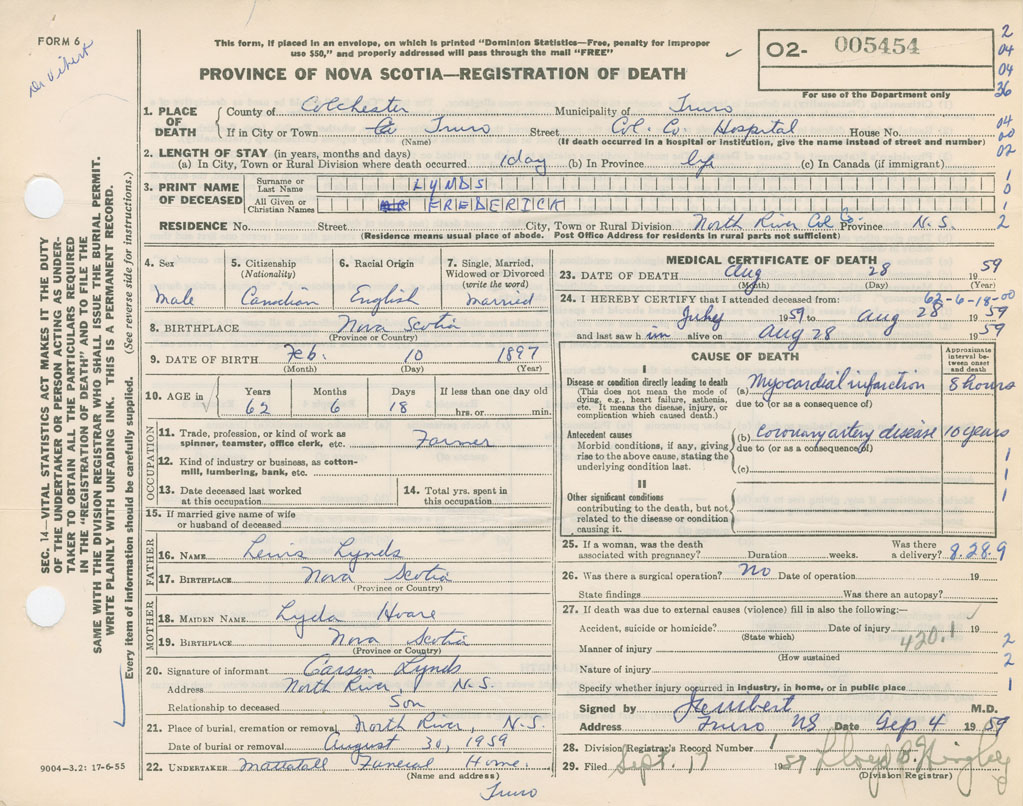 FORM 6
Dr Vibert
This form, if placed in an envelope, on which is printed "Dominion Statistics—Free, penalty for improper
use $50," and properly addressed will pass through the mail "FREE"
PROVINCE OF NOVA SCOTIA—REGISTRATION OF DEATH
02- 005454
For use of the Department only
2
04
04
36
04
00
02
1
0
1
2
1. PLACE OF DEATH
County of Colchester Municipality of Truro
If in City or Town Truro Street Col. Co. Hospital House No.
(Name) (If death occurred in a hospital or institution, give the name instead of street and number)
2. LENGTH OF STAY (in years, months and days)
(a) In City, Town or Rural Division where death occurred 1 day (b) In Province life (c) In Canada (if immigrant)
3. PRINT NAME OF DECEASED
Surname or Last Name LYNDS
All Given or Christian Names FREDERICK
RESIDENCE No. Street City, Town or Rural Division North River Col Co. Province N.S.
(Residence means usual place of abode. Post Office Address for residents in rural parts not sufficient)
4. Sex
Male
5. Citizenship
(Nationality)
Canadian
6. Racial Origin
English
7. Single, Married,
Widowed or Divorced
(write the word)
Married
8. BIRTHPLACE Nova Scotia
(Province or Country)
9. DATE OF BIRTH Feb. 10 1897
(Month) (Day) (Year)
10. AGE in
Years Months Days If less than one day old
62 6 18 hrs. or min.
OCCUPATION
11. Trade, profession, or kind of work as
spinner, teamster, office clerk, etc. Farmer
12. Kind of industry or business, as cotton-
mill, lumbering, bank, etc.
13. Date deceased last worked
at this occupation
14. Total yrs. spent in
this occupation
15. If married give name of wife
or husband of deceased
FATHER
16. NAME Lewis Lynds
17. BIRTHPLACE Nova Scotia
(Province or Country)
MOTHER
18. MAIDEN NAME Lyda Hoare
19. BIRTHPLACE Nova Scotia
(Province or Country)
20. Signature of informant Carson Lynds
Address North River, N.S.
Relationship to deceased Son
21. Place of burial, cremation or removal North River, N.S.
Date of burial or removal August 30, 1959
22. UNDERTAKER Mattatall Funeral Home.
(Name and address)
Truro
9004-3.2: 17-6-55
MEDICAL CERTIFICATE OF DEATH
23. DATE OF DEATH Aug 28 1959
(Month) (Day) (Year)
62-6-18-00
24. I HEREBY CERTIFY that I attended deceased from:
July 1959 to Aug 28 1959
and last saw him alive on Aug 28 1959
CAUSE OF DEATH
Approximate
interval be-
tween onset
and death
I
Disease or condition directly leading to death
(This does not mean the mode of
dying, e.g., heart failure, asthenia,
etc. It means the disease, injury, or
complication which caused death.)
(a) Myocardial infarction 8 hours
due to (or as a consequence of)
Antecedent causes
Morbid conditions, if any, giving
rise to the above cause, stating the
underlying condition last.
(b) Coronary artery disease 10 years
due to (or as a consequence of)
(c)
1
1
1
II
Other significant conditions
contributing to the death, but not
related to the disease or condition
causing it.
25. If a woman, was the death
associated with pregnancy? Duration weeks. Was there
a delivery? 8.28.9
26. Was there a surgical operation? No Date of operation 19
State findings Was there an autopsy?
27. If death was due to external causes (violence) fill in also the following:—
Accident, suicide or homicide? Date of injury 19
(State which)
420.1
Manner of injury 2
(How sustained)
Nature of injury 2
Specify whether injury occurred in industry, in home, or in public place 1
Signed by M.D.
Address Truro NS Date Sep 4 1959
28. Division Registrar's Record Number 1
29. Filed Sept. 17 1959
(Division Registrar)
SEC. 14—VITAL STATISTICS ACT MAKES IT THE DUTY
OF THE UNDERTAKER OR PERSON ACTING AS UNDER-
TAKER TO OBTAIN ALL THE PARTICULARS REQUIRED
IN THE "REGISTRATION OF DEATH" AND TO FILE THE
SAME WITH THE DIVISION REGISTRAR WHO SHALL ISSUE THE BURIAL PERMIT.
WRITE PLAINLY WITH UNFADING INK. THIS IS A PERMANENT RECORD.
Every item of information should be carefully supplied. (See reverse side for instructions.)